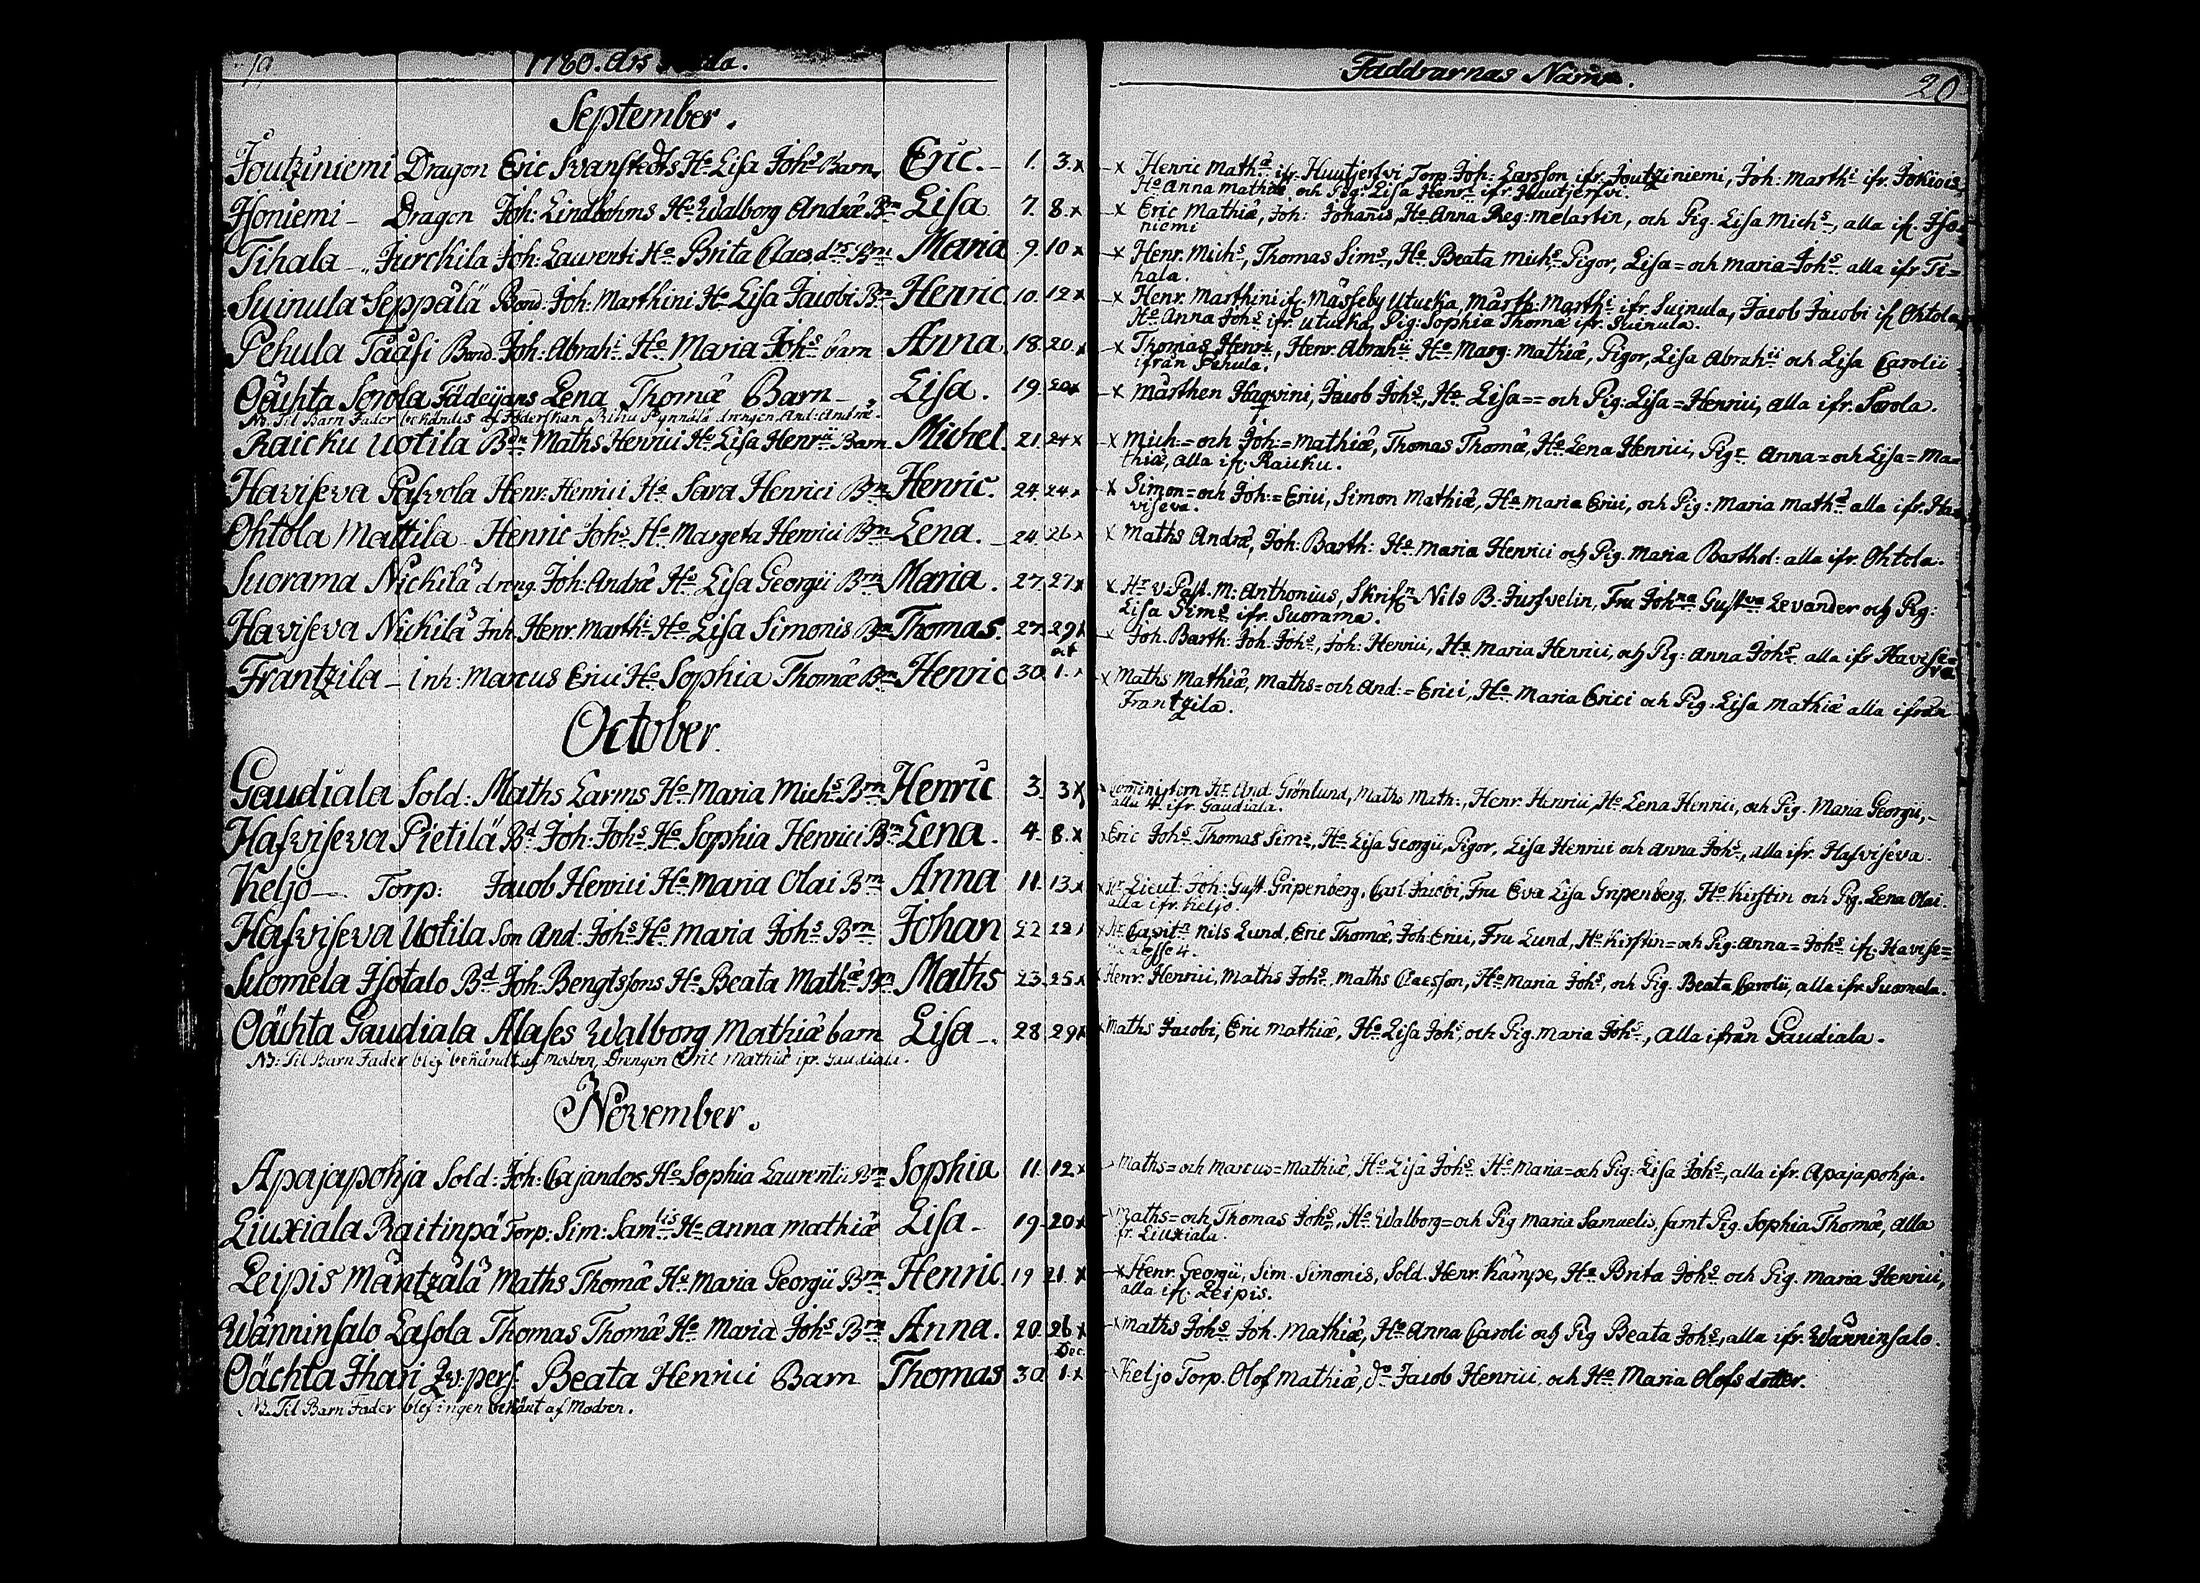 19
1760. Års
September.
Joutziniemi Dragon Eric Svanstedts Ho Lisa Johs Barn Eric. 1. 3.x
Isoniemi - Dragon Joh: Lindbohms Ho Walborg Andræ Brn Lisa 7. 8.x
Tihala - Jurckila Joh: Laurenti Ho Brita Claesdtr Brn Maria 9. 10 x
Suinula Seppälä Bond. Joh: Marthini Ho Lisa Jacobi Brn Henric 10. 12 x
Pehula Tääsi Bond. Joh: Abrahi Ho Maria Johs barn Anna. 18. 20 x
Oächta Sorola Lena Thomæ Barn - Lisa. 19. 20x
N: Til Barn Fader drengen And: Andræ.
Raicku Uotila Bdn Maths Henrici Ho Lisa Henrii Barn Michel. 21. 24 x
Haviseva Pasvola Henr: Henrici Ho Sara Henrici Brn Henric. 24. 24 x
Ohtola Mattila Henric Johs Ho Margeta Henrici Brn Lena. 24. 26 x
Suorama Nickilä dreng. Joh: Andræ Ho Lisa Georgii Brn Maria. 27. 27 x
Haviseva Nickilä Inh. Henr. Marthi Ho Lisa Simonis Brn Thomas. 27. 29x
oct
Frantzila - inh: Marcus Erici Ho Sophia Thomæ Brn Henric 30. 1. x
October.
Gaudiala Sold: Maths Larms Ho Maria Michs Brn Henric 3. 3x
Hafviseva Pietilä Bd Joh: Johs Ho Sophia Henrici Brn Lena. 4. 8.x
Keljo - Torp: Jacob Henrici Ho Maria Olai Brn Anna 11. 13.x
Hafviseva Uotila Son And: Johs Ho Maria Johs Brn Johan 22
Suomela Isotalo Bd Joh. Bengtssons Ho Beata Mathæ Brn Maths 23. 25 x
Oächta Gaudiala Walborg Mathiæ barn Lisa -. 28 29x
N: Til Barn Fader blef benämdt af modren, Drengen Eric Mathiæ ifr. Gaudiala.
November.
Apajapohja Sold: Joh: Cajanders Ho Sophia Laurentii Brn Sophia 11. 12 x
Liuxiala Raitinpä Torp: Sim: Samlis Ho Anna Mathiæ Lisa - 19. 20x
Leipis Mäntzälä Maths Thomæ Ho Maria Georgii Brn Henric. 19 21. x
Wänninsalo Lasola Thomas Thomæ Ho Maria Johs Brn Anna. 20. 26 x
Dec.
Oächta Ihari Qv: pers: Beata Henrici Barn Thomas 30 1.x
N: Til Barn Fader blef ingen benämt af Modren.
Faddrarnas Namn.
20
x Henric Mathæ ifr. Huutjerfvi, Torp. Joh: Larsson ifr. Joutziniemi, Joh: Marthi ifr. Jokiois,
Ho Anna Mathiæ och Pig: Lisa Henri ifr. Huutjerfvi.
x Eric Mathiæ, Joh: Johannis, Ho Anna Reg: Melartin, och Pig. Lisa Michs, alla ifr. Iso=
niemi
x Henr. Michs, Thomas Sims, Ho Beata Michs, Pigor, Lisa= och Maria= Johs alla ifr. Ti=
hala.
x Henr. Marthini ifr. Mässeby Utucka, Märth: Marthi ifr. Suinula, Jacob Jacobi ifr Ohtola
Ho Anna Johs ifr. Utucka, Pig: Sophia Thomæ ifr. Suinula.
x Thomas Henri, Henr. Abrahii Ho Marg: Mathiæ, Pigor, Lisa Abrahii och Lisa Carolii
ifrån Pehula.
x Mårthen Haqvini, Jacob Johs, Ho Lisa== och Pig: Lisa= Henrici, alla ifr. Sorola.
x Mich:= och Joh:= Mathiæ, Thomas Thomæ, Ho Lena Henrici, Pigr. Anna= och Lisa= Ma=
thiæ, alla ifr. Raicku.
x Simon= och Joh:= Erici, Simon Mathiæ, Ho Maria Erici, och Pig: Maria Mathæ alla ifr. Ha=
viseva.
x Maths Andræ, Joh: Barth: Ho Maria Henrici och Pig. Maria Barthol: alla ifr. Ohtola.
x Hr v. Past. M: Anthonius, Skrifn Nils B: Jursvelin, Fru Johna Gustva Levander och Pig:
Lisa Sims ifr. Suorama.
x Joh. Barth: Joh. Johs, Joh: Henrici, Ho Maria Henrici, och Pig: Anna Johs alla ifr Havise=
va
x Maths Mathiæ, Maths= och And:= Erici, Ho Maria Erici och Pig: Lisa Mathiæ alla ifrån
Frantzila.
Hr And: Grönlund, Maths Math:, Henr. Henrici, Ho Lena Henrici, och Pig. Maria Georgii,
alla ifr. Gaudiala.
x Eric Johs Thomas Sims, Ho Lisa Georgii, Pigor, Lisa Henrici och Anna Johs, alla ifr. Hafviseva.
x Hr Lieut: Joh: Gust Gripenberg, Carl Jacobi, Fru Eva Lisa Gripenberg, Ho Kirstin och Pig. Lena Olai
alla ifr. Keljo.
x Hr Capitn Nils Lund, Eric Thomæ, Joh: Erici, Fru Lund, Ho Kirstin= och Pig: Anna= Johs ifr. Havise=
x Henr. Henrici, Maths Johs, Maths Claesson, Ho Maria Johs, och Pig. Beata Carolii, alla ifr Suomela.
x Maths Jacobi, Eric Mathiæ, Ho Lisa Johs, och Pig. Maria Johs, alla ifrån Gaudiala.
Maths= och Marcus= Mathiæ, Ho Lisa Johs Ho Maria= och Pig: Lisa Johs, alla ifr. Apajapohja.
Maths= och Thomas Johs, Ho Walborg= och Pig Maria Samuelis, samt Pig. Sophia Thomæ, alla
fr. Liuxiala.
x Henr. Georgii, Sim. Simonis, Sold. Henr. Kämpe, Ho Brita Johs och Pig. Maria Henrici,
alla ifr. Leipis.
x Maths Johs Joh. Mathiæ, Ho Anna Caroli och Pig Beata Johs, alla ifr. Wänninsalo.
x Keljo Torp. Olof Mathiæ, do Jacob Henrici, och Ho Maria Olofsdotter.